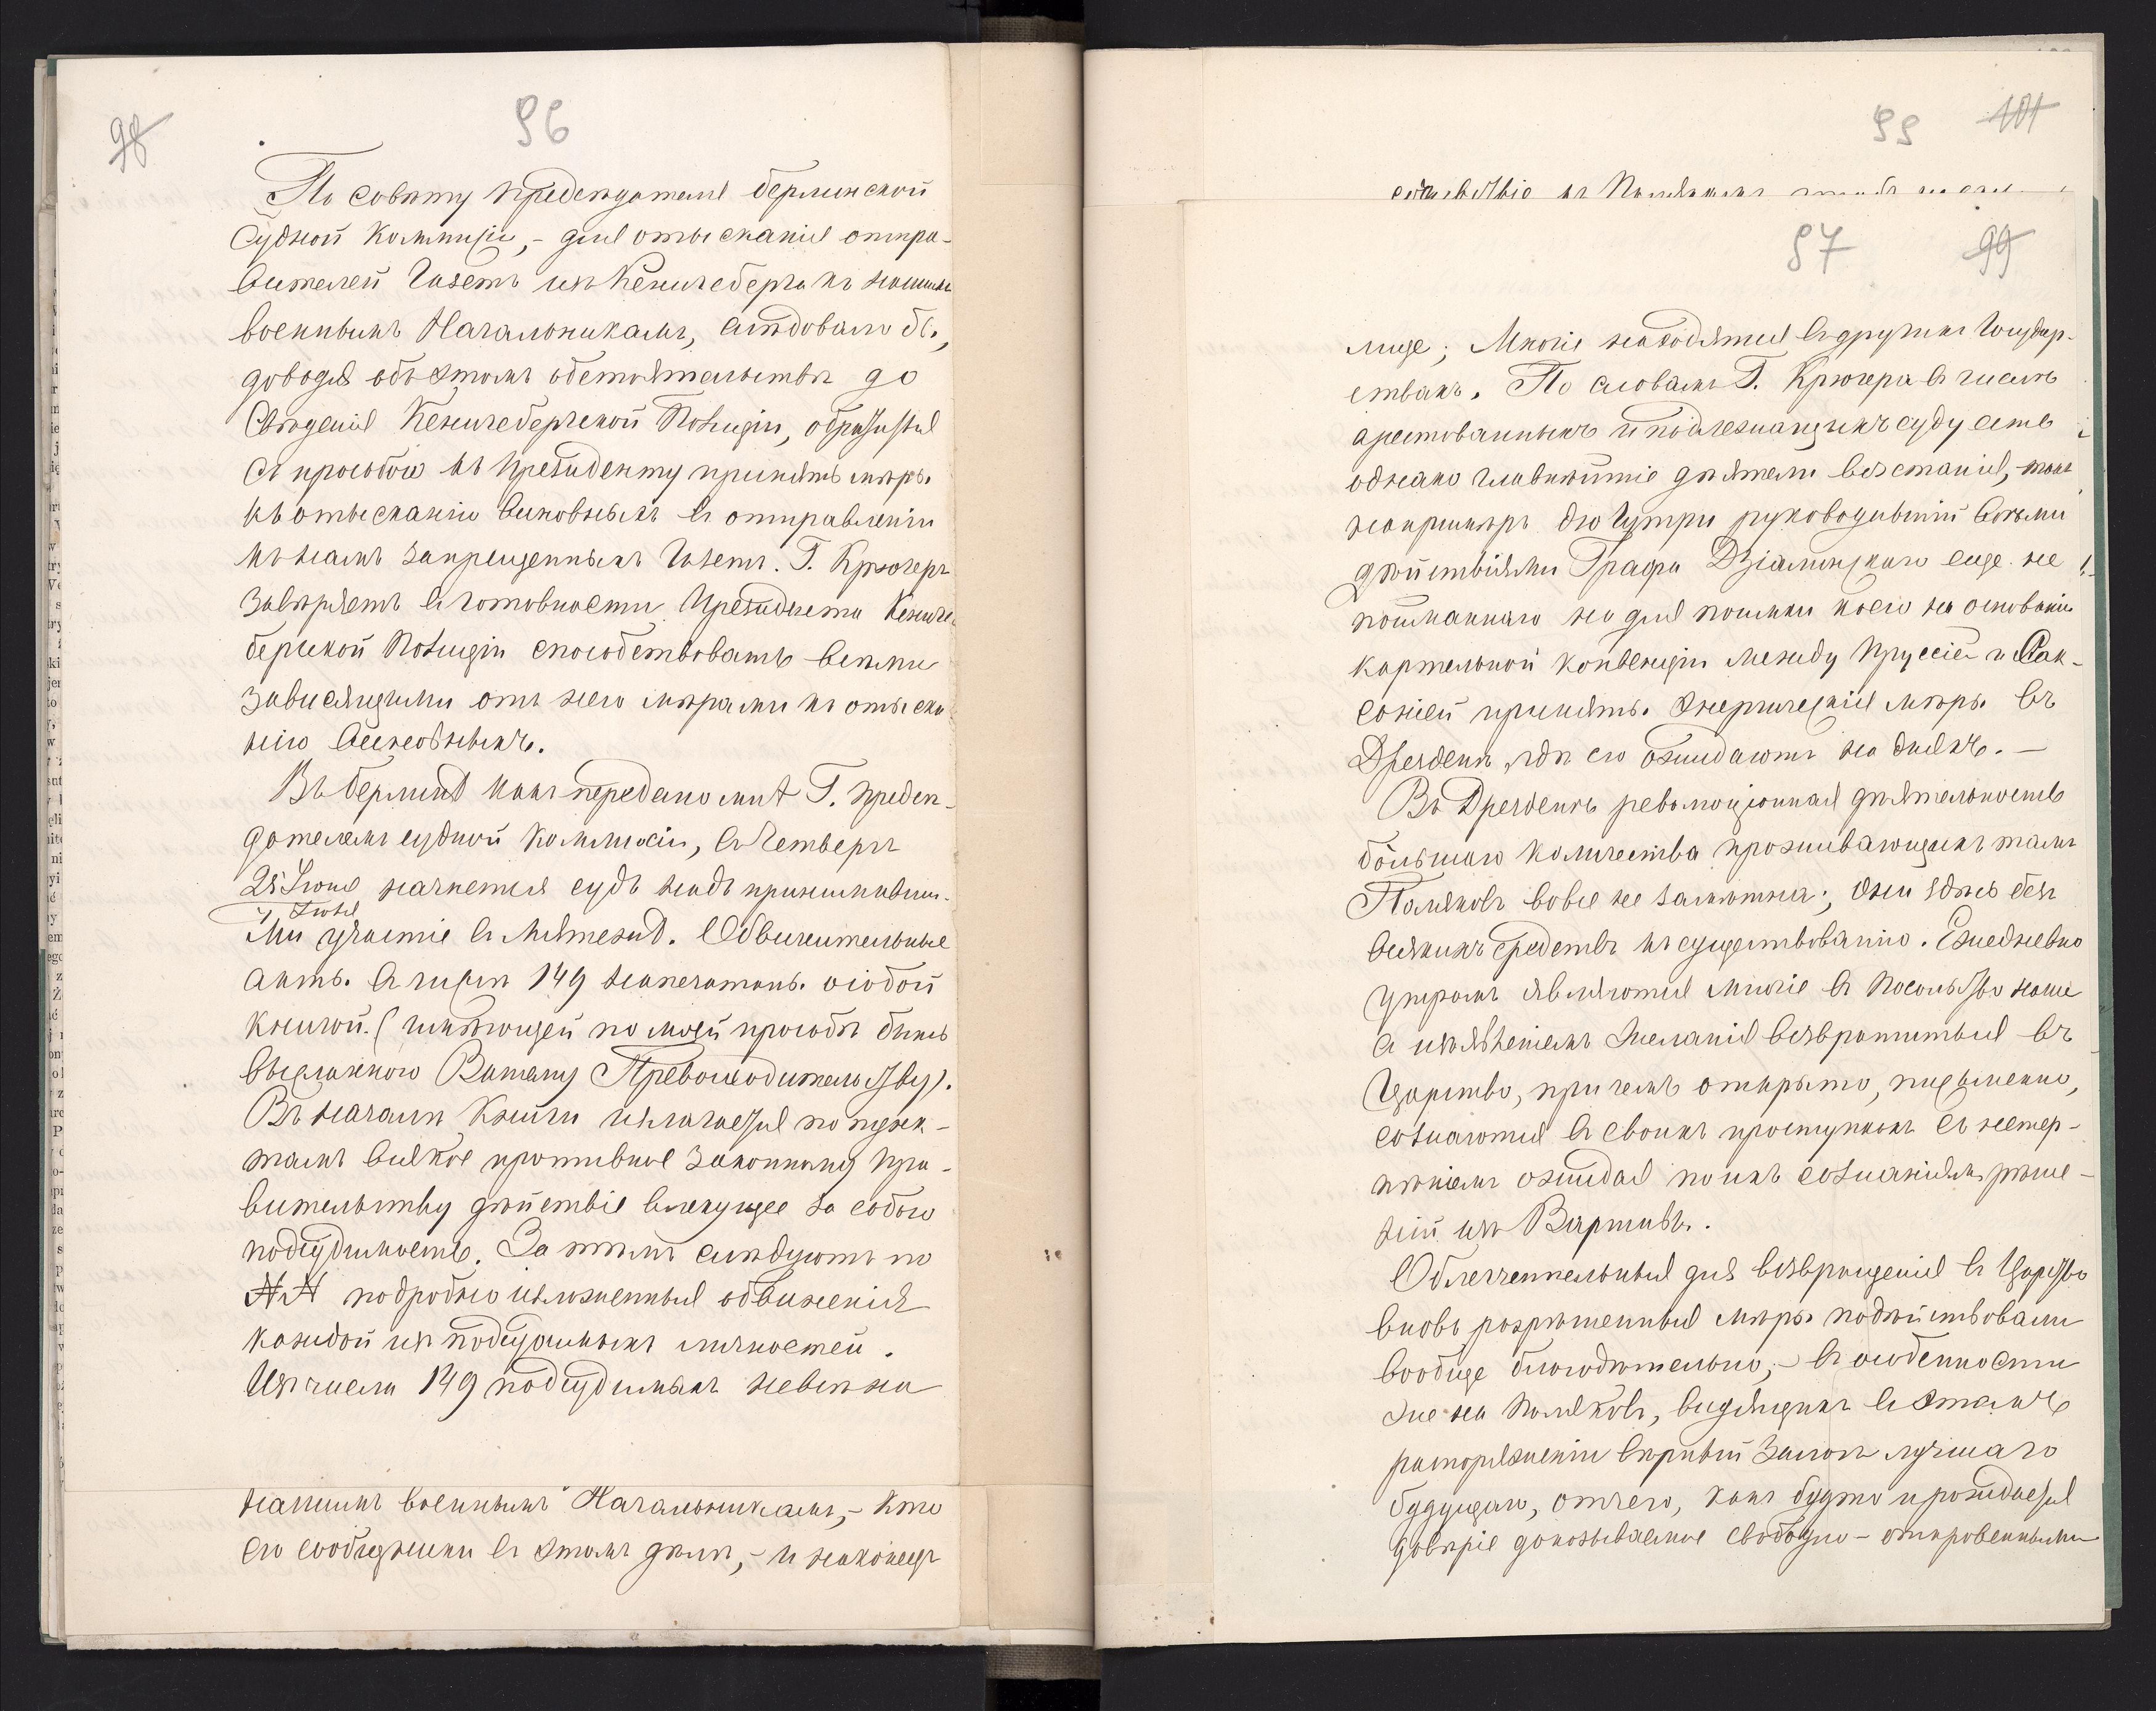 98
96
По совѣту предсѣдателя берлинской
Судной Коммисіи, - для отысканія отпра-
вителей Газетъ изъ Кенигсберга къ нашимъ
военнымъ Начальникамъ, слѣдовало бы,
доводя объ этомъ обстоятельствѣ до
Свѣденія Кенигсбергской Полиціи, обратиться
съ просьбою къ Президенту принять мѣры
къ отысканію виновныхъ въ отправленіи
къ намъ запрещенныхъ Газетъ. Г. Крюгеръ
завѣряетъ въ готовности Президента Кенигс-
бергской Полиціи способствовать всѣми
зависящими отъ него мѣрами къ отыска-
нію виновныхъ.
Въ берлинѣ какъ передано мнѣ Г. предсѣ-
дателемъ судной Коммисіи, въ Четвергъ
25 Іюня начнется судъ надъ принимавши-
7 Іюля
ми участіе въ Мятежѣ. Обвинительные
акты въ числѣ 149 напечатаны особой
книгой. (имѣющей по моей просьбѣ быть
высланною Вашему Превосходительству).
Въ началѣ Книги излагается по пунк-
тамъ всякое противное Законному пра-
вительству дѣйствіе влекущее за собою
подсудимость. За тѣмъ слѣдуютъ по
NN подробно изложенныя обвиненія
каждой изъ подсудимыхъ личностей.
Изъ числа 149 подсудимыхъ не всѣ на
нашимъ военнымъ Начальникамъ, - кто
его сообщники въ этомъ дѣлѣ, - и наконецъ
99 101
97 99
лице; Многіе находятся въ другихъ Государ-
ствахъ. По словамъ Г. Крюгера въ числѣ
арестованныхъ и подлежащихъ суду есть
однако главнѣйшіе дѣятели возстанія, такъ
напримѣръ руководившій всѣми
дѣйствіями Графа Дзіалинскаго еще не
пойманнаго но для поимки коего на основаніи
картельной конвенціи между Пруссіей и Сак-
соніей приняты энергическія мѣры въ
Дрезденѣ, гдѣ его ожидаютъ на дняхъ. —
Въ Дрезденѣ революціонная дѣятельность
большаго количества проживающихъ тамъ
Поляковъ вовсе не замѣтна; Они здѣсь безъ
всякихъ средствъ къ существованію. Ежедневно
утромъ являются многіе въ Посольство наше
съ изъявленіемъ желанія возвратиться въ
Царство, при чемъ открыто, письменно,
сознаются въ своихъ проступкахъ съ нетер-
пѣніемъ ожидая по ихъ сознаніямъ рѣше-
ній изъ Варшавы.
Облегчительныя для возвращенія въ Царство
вновь разрѣшенныя мѣры подѣйствовали
вообще благодѣтельно, - въ особенности
же на Поляковъ, видящихъ въ этомъ
распоряженіи вѣрный залогъ лучшаго
будущаго, отчего, какъ будто пробуждается
довѣріе доказываемое свободно-откровенными